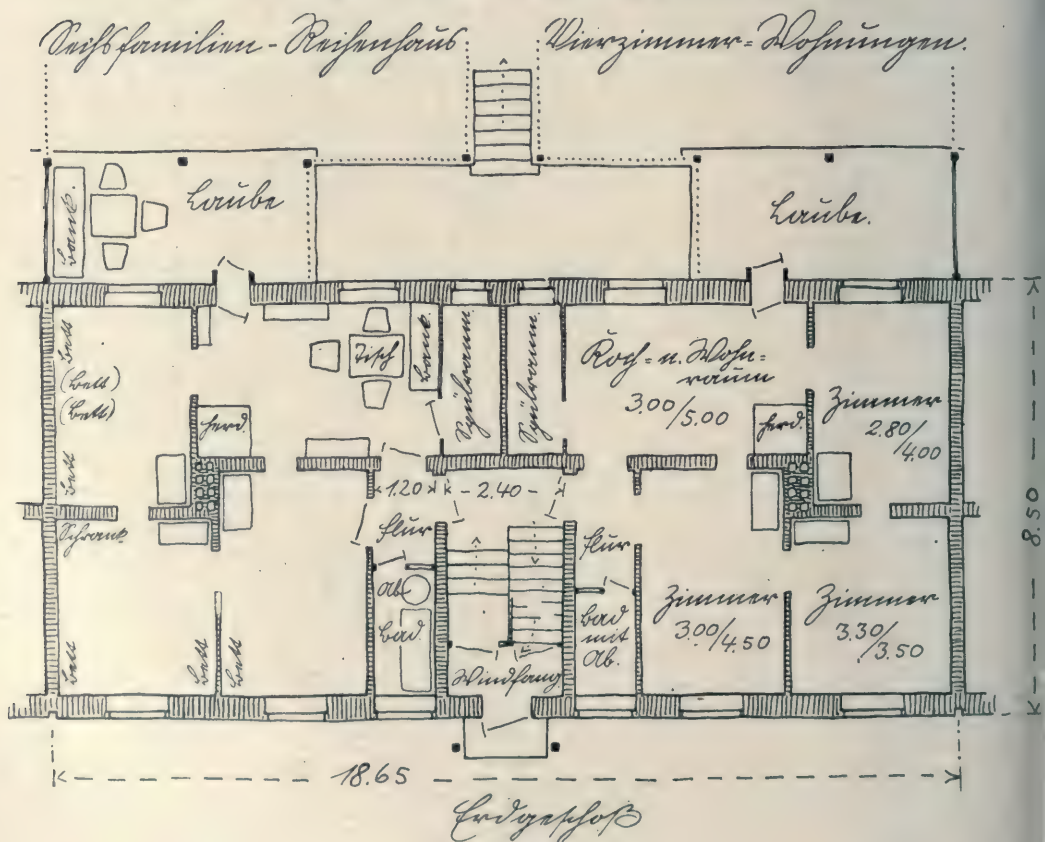 Sechsfamilien-Reihenhaus
Vierzimmer-Wohnungen.
Laube
Laube.
Bank.
Bett
(Bett)
(Bett)
Bett
Schrank
Bett
Bett
Bett
Herd.
Tisch
Bank.
Spülraum
Spülraum
Koch- u. Wohn-
raum
3.00/5.00
Herd.
Zimmer
2.80/4.00
1.20
2.40
Flur
Ab.
Bad.
Flur
Bad
mit
Ab.
Zimmer
3.00/4.50
Zimmer
3.30/3.50
Windfang
8.50
18.65
Erdgeschoß